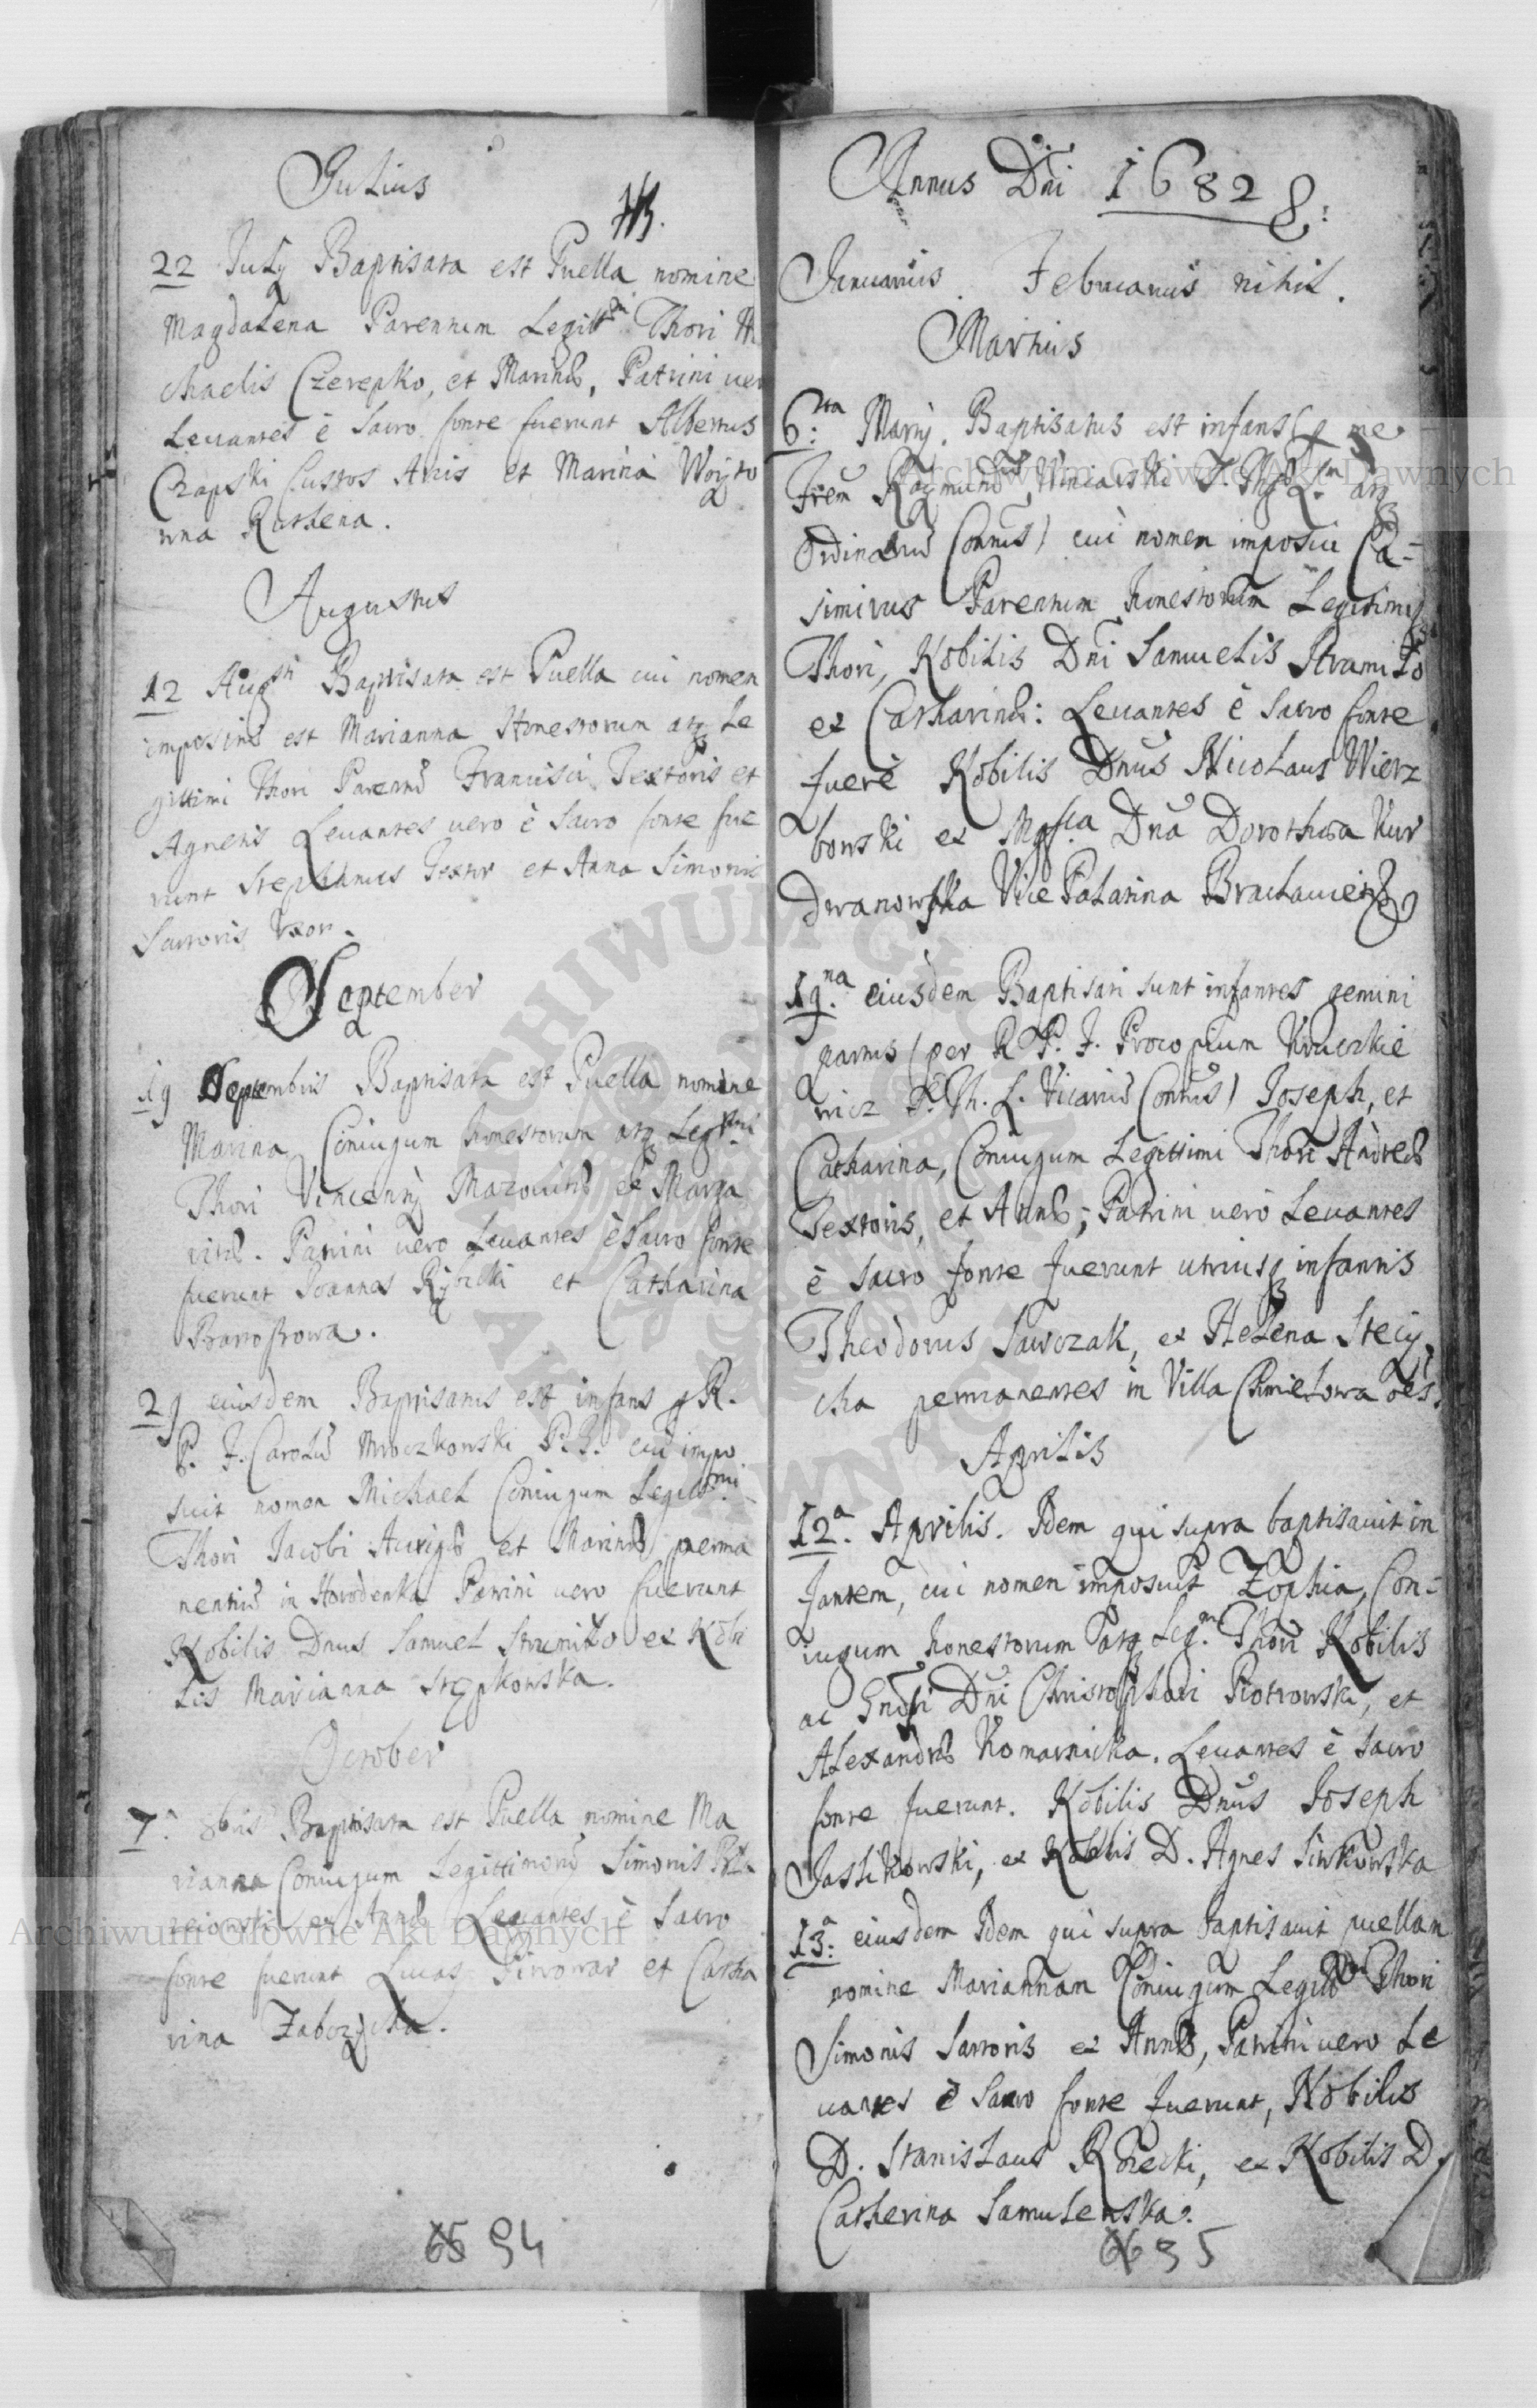 Julius
22 July Baptisata est Puella nomine
Magdalena Parentum Legitt Thori Mi
chaelis Czerepko, et Marinæ, Patrini ver
Leuantes è Sacro fonte fuerunt Albertus
Czapski Custos Arcis et Marina Woyto
wna Rusthena.
Augustus
12 Augsti Baptisata est Puella cui nomen
impositũ est Marianna Honestorum atq Le
gittimi Thori Parentũ Francisci Textoris et
Agnetis Leuantes uero è Sacro fonte fue
runt Stephanus Textor et Anna Simonis
Sartoris Uxor.
September
19 Septembris Baptisata est Puella nomine
Marina Coniugum honestorum atq Legtmi
Thori Vincentij Mazouitæ et Marga
ritæ. Patrini uero Leuantes è Sacro fonte
fuerunt Joannes Rybicki et Catharina
29 eiusdem Baptisatus est infans p R.
P. F. Carolũ Mroczkowski P. G. cui impo
suit nomen Michael Coniugum Legittmi
Thori Jacobi Aurigæ et Marinæ perma
nentiũ in Horodenka Patrini uero fuerunt
Nobilis Dnus Samuel Strumiło et Nobi
lis Marianna Stępkowska.
October
7. 8bris Baptisata est Puella nomine Ma
rianna Coniugum Legittimorũ Simonis
et Annæ Leuantes è Sacro
fonte fuerunt Lucas Piwowar et Catha
rina
65 94
Annus Dni 1682
Januarius. Februarius nihil.
Martius
6ta: Martij. Baptisatus est infans (p me
Frem Raymundũ Winiarski
Ordinariũ Conuũs) cui nomen imposui Ca-
simirus Parentum honestorum Legitimiq
Thori, Nobilis Dni Samuelis Strumiło
et Catharinæ: Leuantes è Sacro fonte
fuere Nobilis Dnus Nicolaus Wierz
bowski et Mgfca Dna Dorothea Kur
dwanowska Vice Palatina Braclauien
19na. eiusdem Baptisati sunt infantes gemini
partus (per R P. F. Procopium Kruczkie
wicz S. Th. L. Vicariũ Conuũs) Joseph, et
Catharina, Coniugum Legittimi Thori Andreæ
Textoris, et Annæ; Patrini uero Leuantes
è Sacro fonte fuerunt utriusq infantis
Theodorus Sawczak, et Helena Stecy
cha permanentes in Villa Chmielowa
Aprilis
12a. Aprilis. Idem qui supra baptisauit in
fantem, cui nomen imposuit Zophia, Con-
iugum honestorum atq Leg.m Thori Nobilis
ac Gnosi Dni Christophori Piotrowski, et
Alexandræ Komarnicka. Leuantes è Sacro
fonte fuerunt. Nobilis Dnus Joseph
Jaslikowski, et Nobilis D. Agnes Siwkowska
13a: eiusdem Idem qui supra baptisauit puellam
nomine Mariannam Coniugum Legitt Thori
Simonis Sartoris et Annæ, Patrini uero Le
uantes è Sacro fonte fuerunt, Nobilis
D. Stanislaus et Nobilis D.
Catherina Samulenska.
66 95
Archiwum Główne Akt Dawnych
Archiwum Główne Akt Dawnych